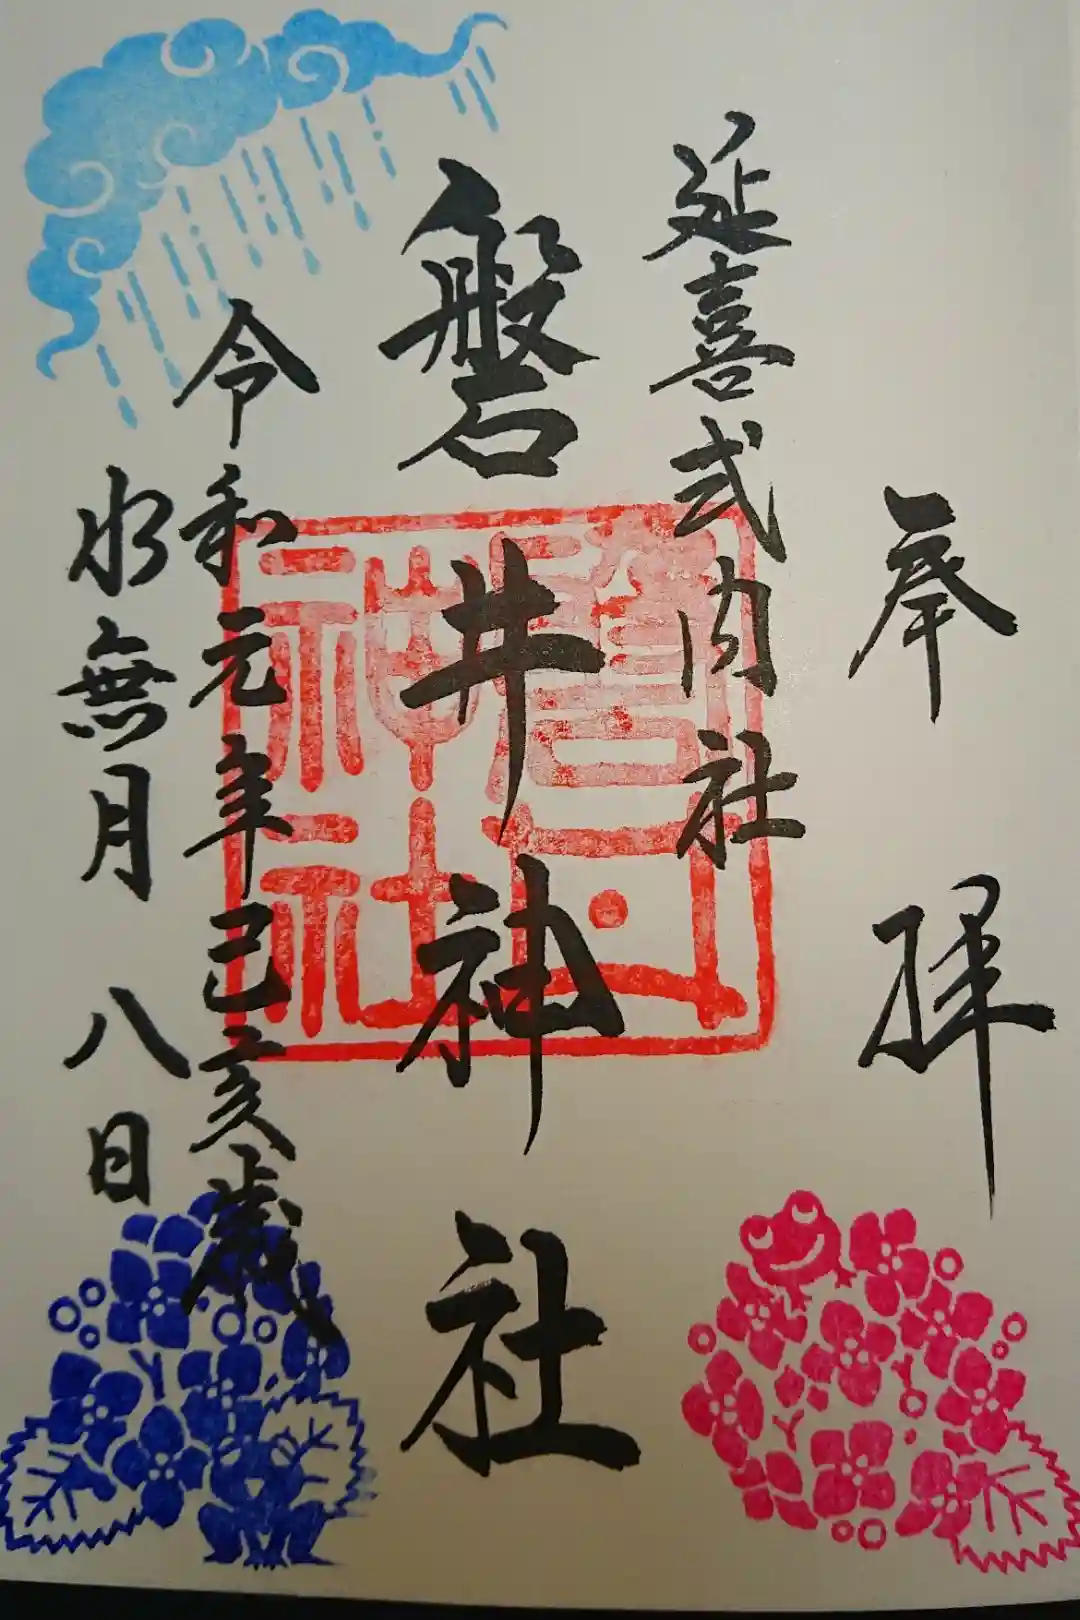 奉拝
延喜式内社
磐井神社
令和元年己亥歳
水無月八日
磐井神社